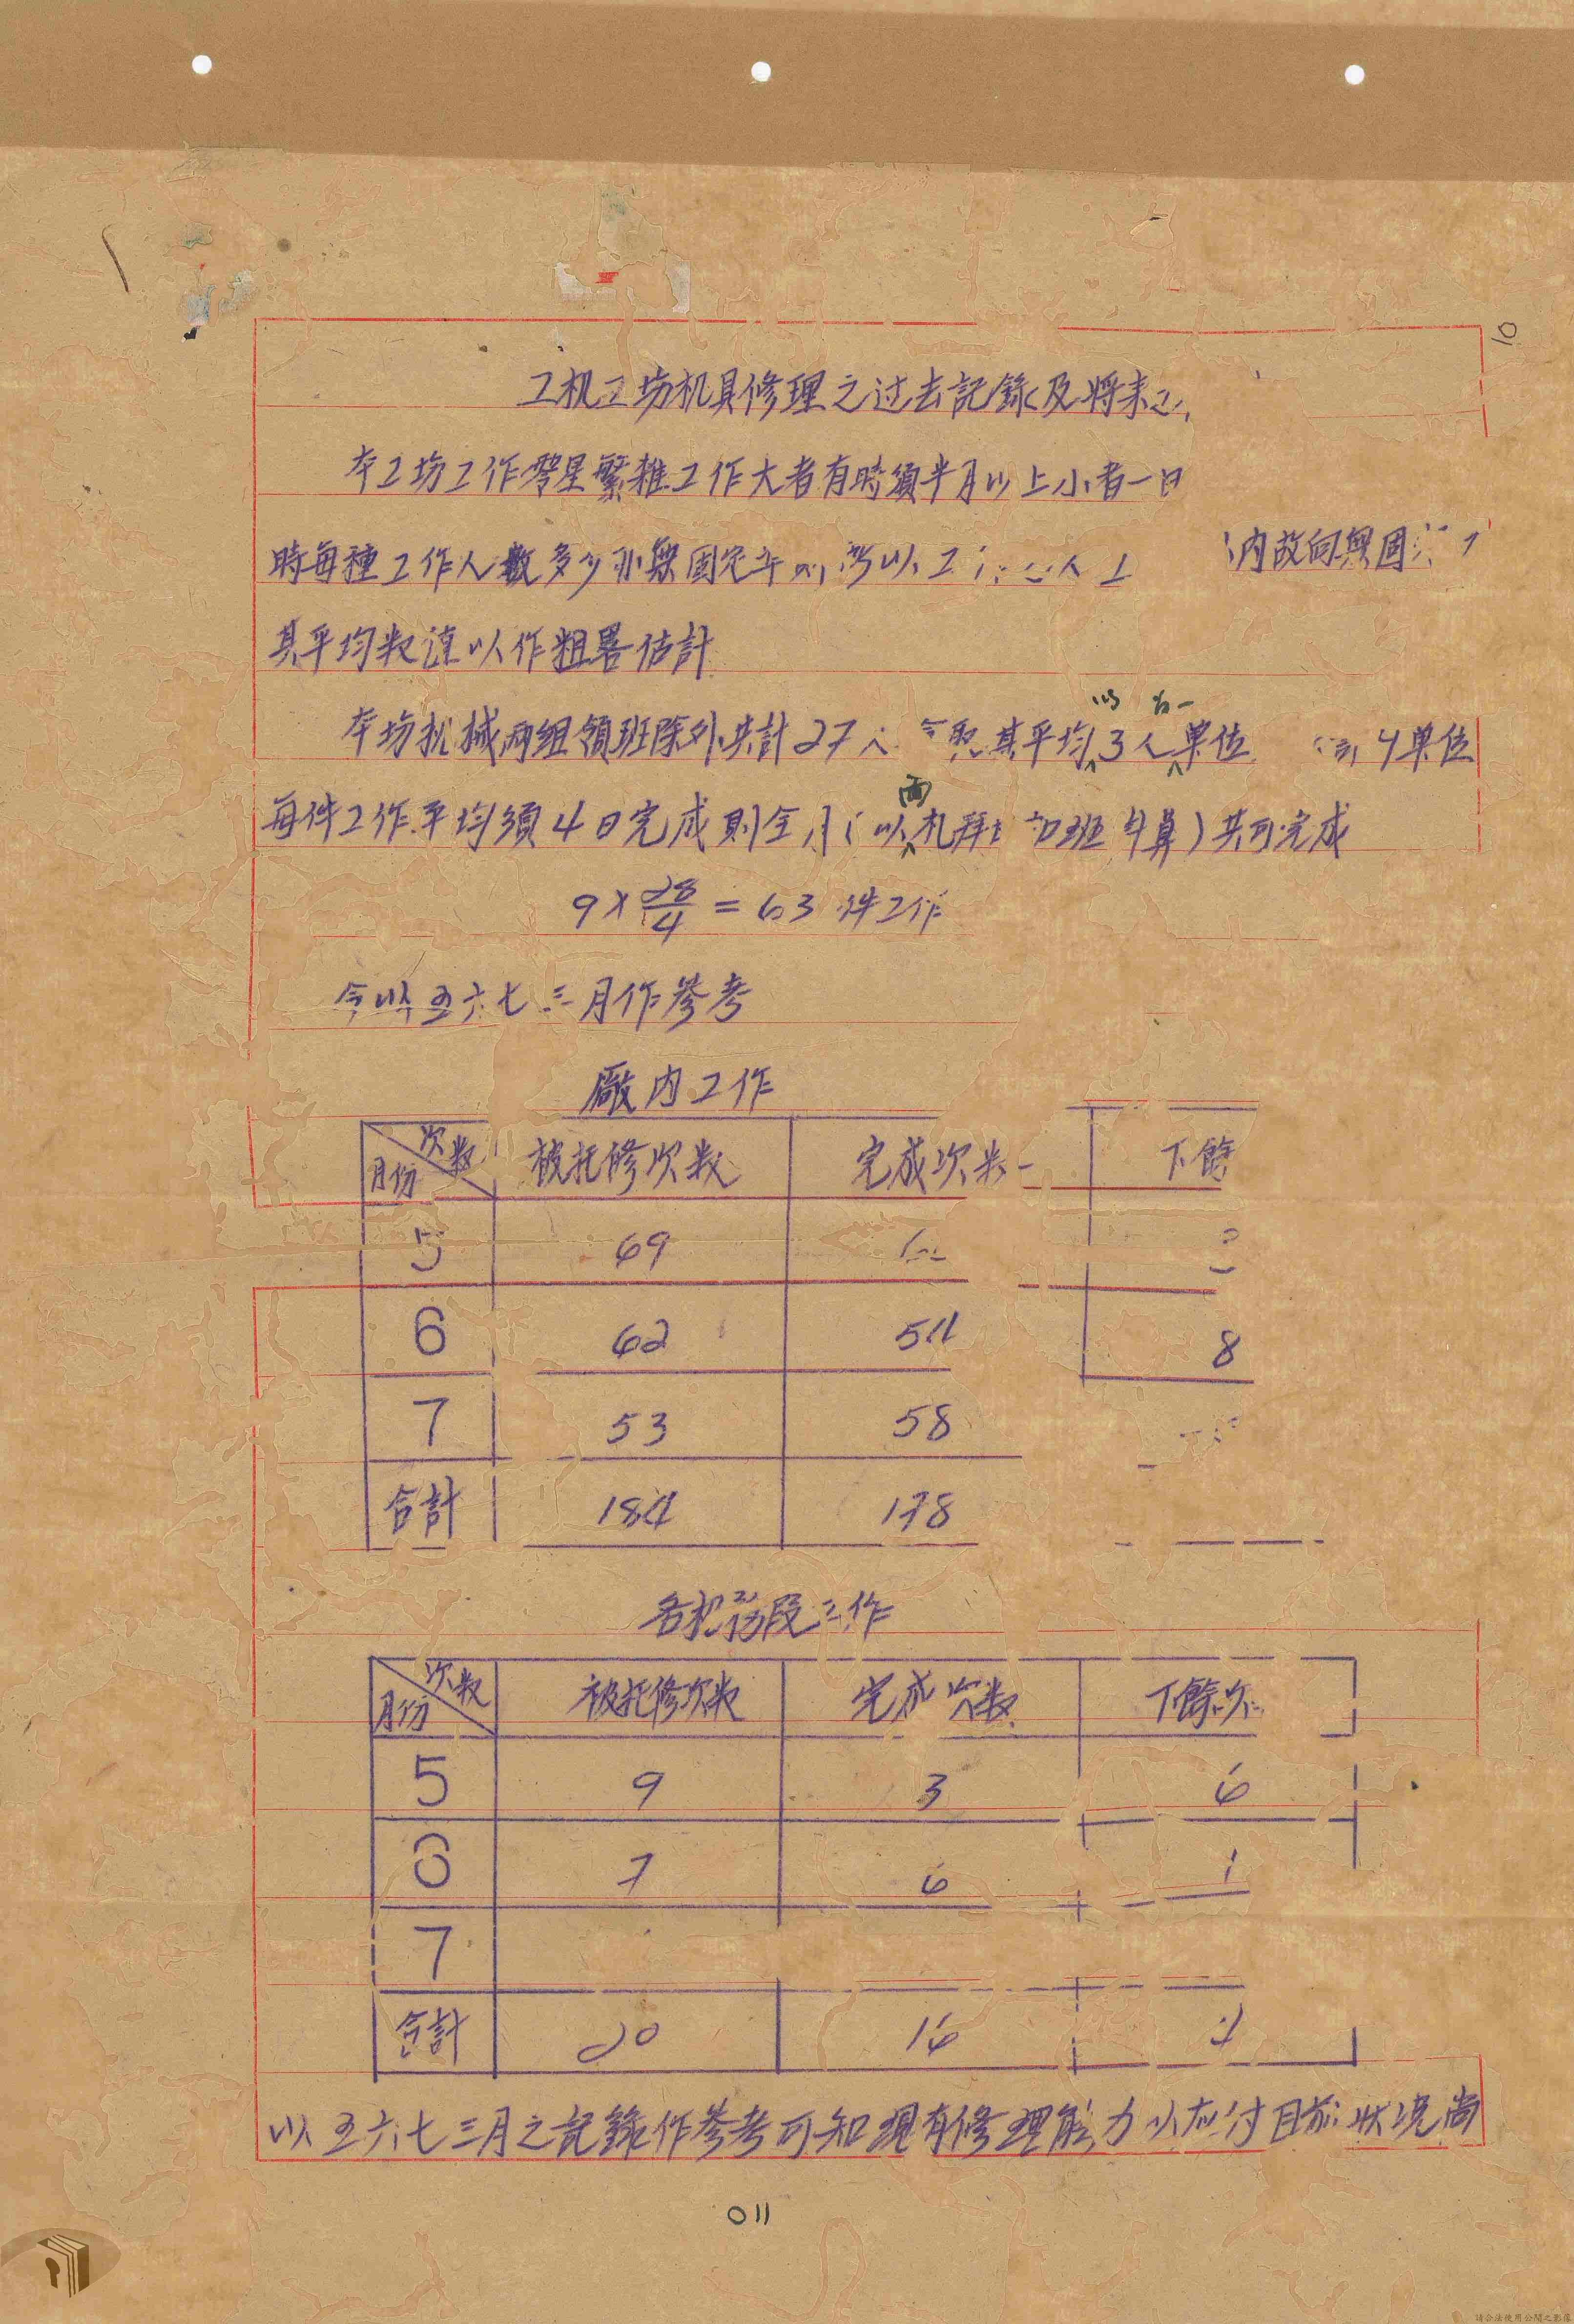 10
工机工場机具修理之过去記錄及將来之
本工場工作零星繁雜工作大者有時須半月以上小者一日
內故向無固
時每種工作人數多少亦無固定
其平均數值以作粗畧估計
本場机械兩組領班除外共計27人 今 其平均以3人為一單位 4單位
每件工作平均須4日完成則全月(以兩礼拜 加班計算)共可完成
9×28/4=63件工作
今以五六七三月作參考
廠内工作
次數 月份 被托修次数 完成次数 下餘
5 69
6 62 54 8
7 53 58
合計 184 178
各机務段工作
次数 月份 被托修次数 完成次数 下餘次
5 9 3 6
6 7 6 1
7
合計 20 16
以五六七三月之記錄作參考可知現有修理能力以应付目前狀况尚
011
請合法使用公開之影像